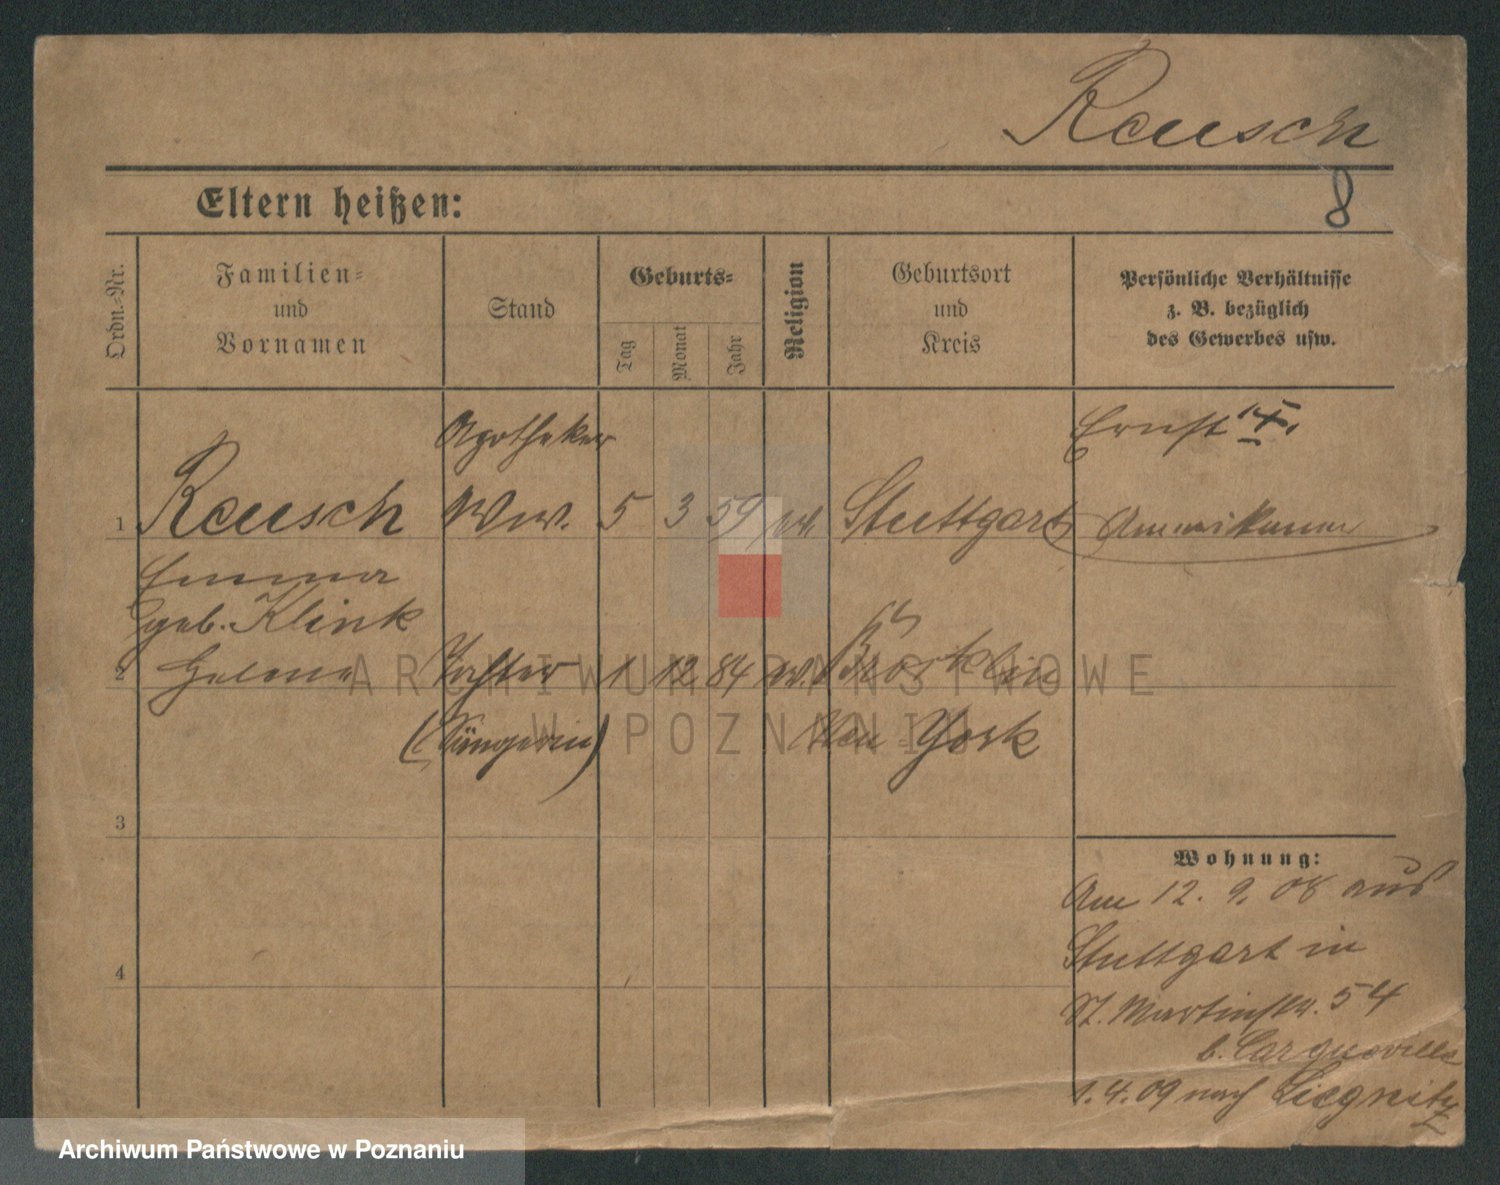 Rausch
Eltern heißen:
8
Ordn.-Nr.
Familien-
und
Vornamen
Stand
Geburts-
Tag
Monat
Jahr
Religion
Geburtsort
und
Kreis
Persönliche Verhältnisse
z. B. bezüglich
des Gewerbes usw.
Apotheker
Ernst
1 Rausch Ww. 5 3 59 ev. Stuttgart Amerikaner
Emma
geb. Klink
2 Helene Tochter 1 12 84 ev. Brooklin
(Sängerin) New York
3
4
Wohnung:
Am 12. 9. 08 aus
Stuttgart in
St. Martinstr. 54
b.
1. 4. 09 nach Liegnitz
ARCHIWUM PAŃSTWOWE
W POZNANIU
Archiwum Państwowe w Poznaniu